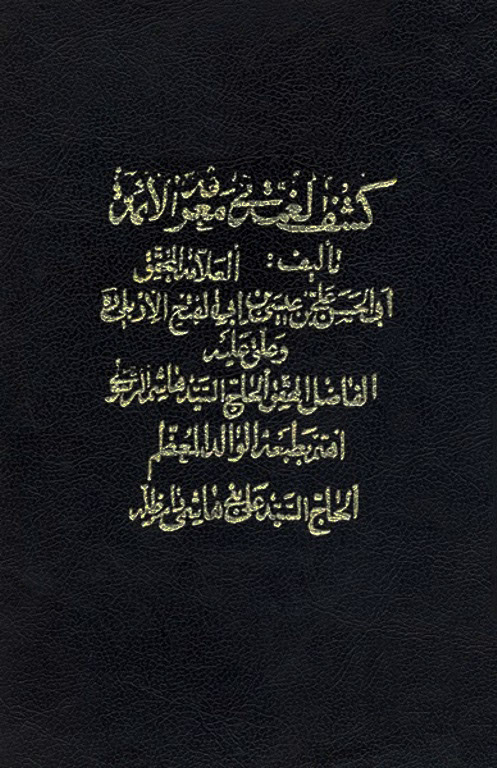 كشف الغمة في معرفة الأئمة
تأليف: العلامة المحقق
أبي الحسن علي بن عيسى بن أبي الفتح الإربلي ره
وعلق عليه
الفاضل المحقق الحاج السيد هاشم الرسولي
اهتم بطبعه الوالد المعظم
الحاج السيد علي بني هاشمي دام ظله